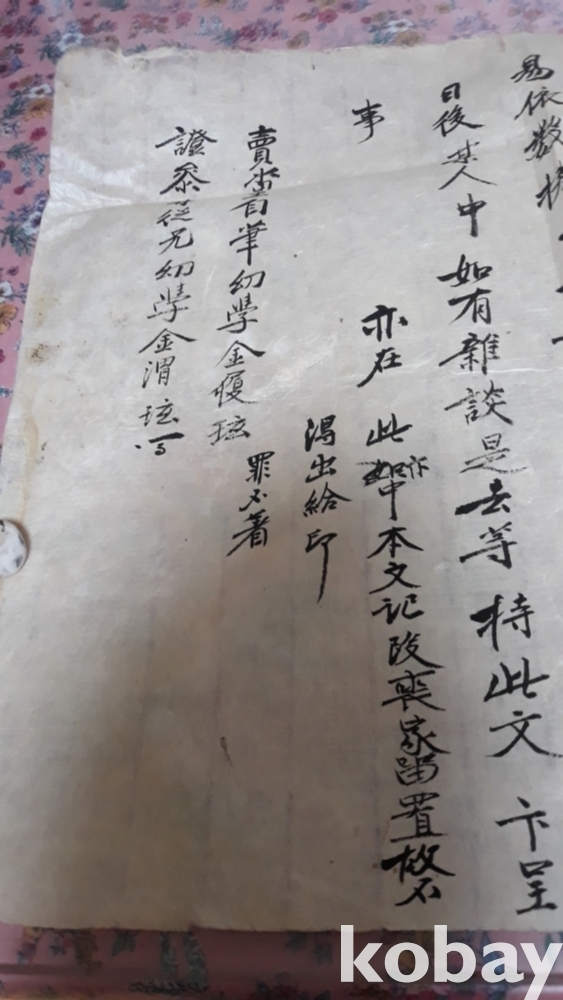 易依數
日後某人中如有雜談是去等持此文卞呈
事
亦在此卞中本文記段喪家留置故不
渴出給印
賣者自筆幼學金愎玹
罪不着
證參從兄幼學金渭玹
kobay